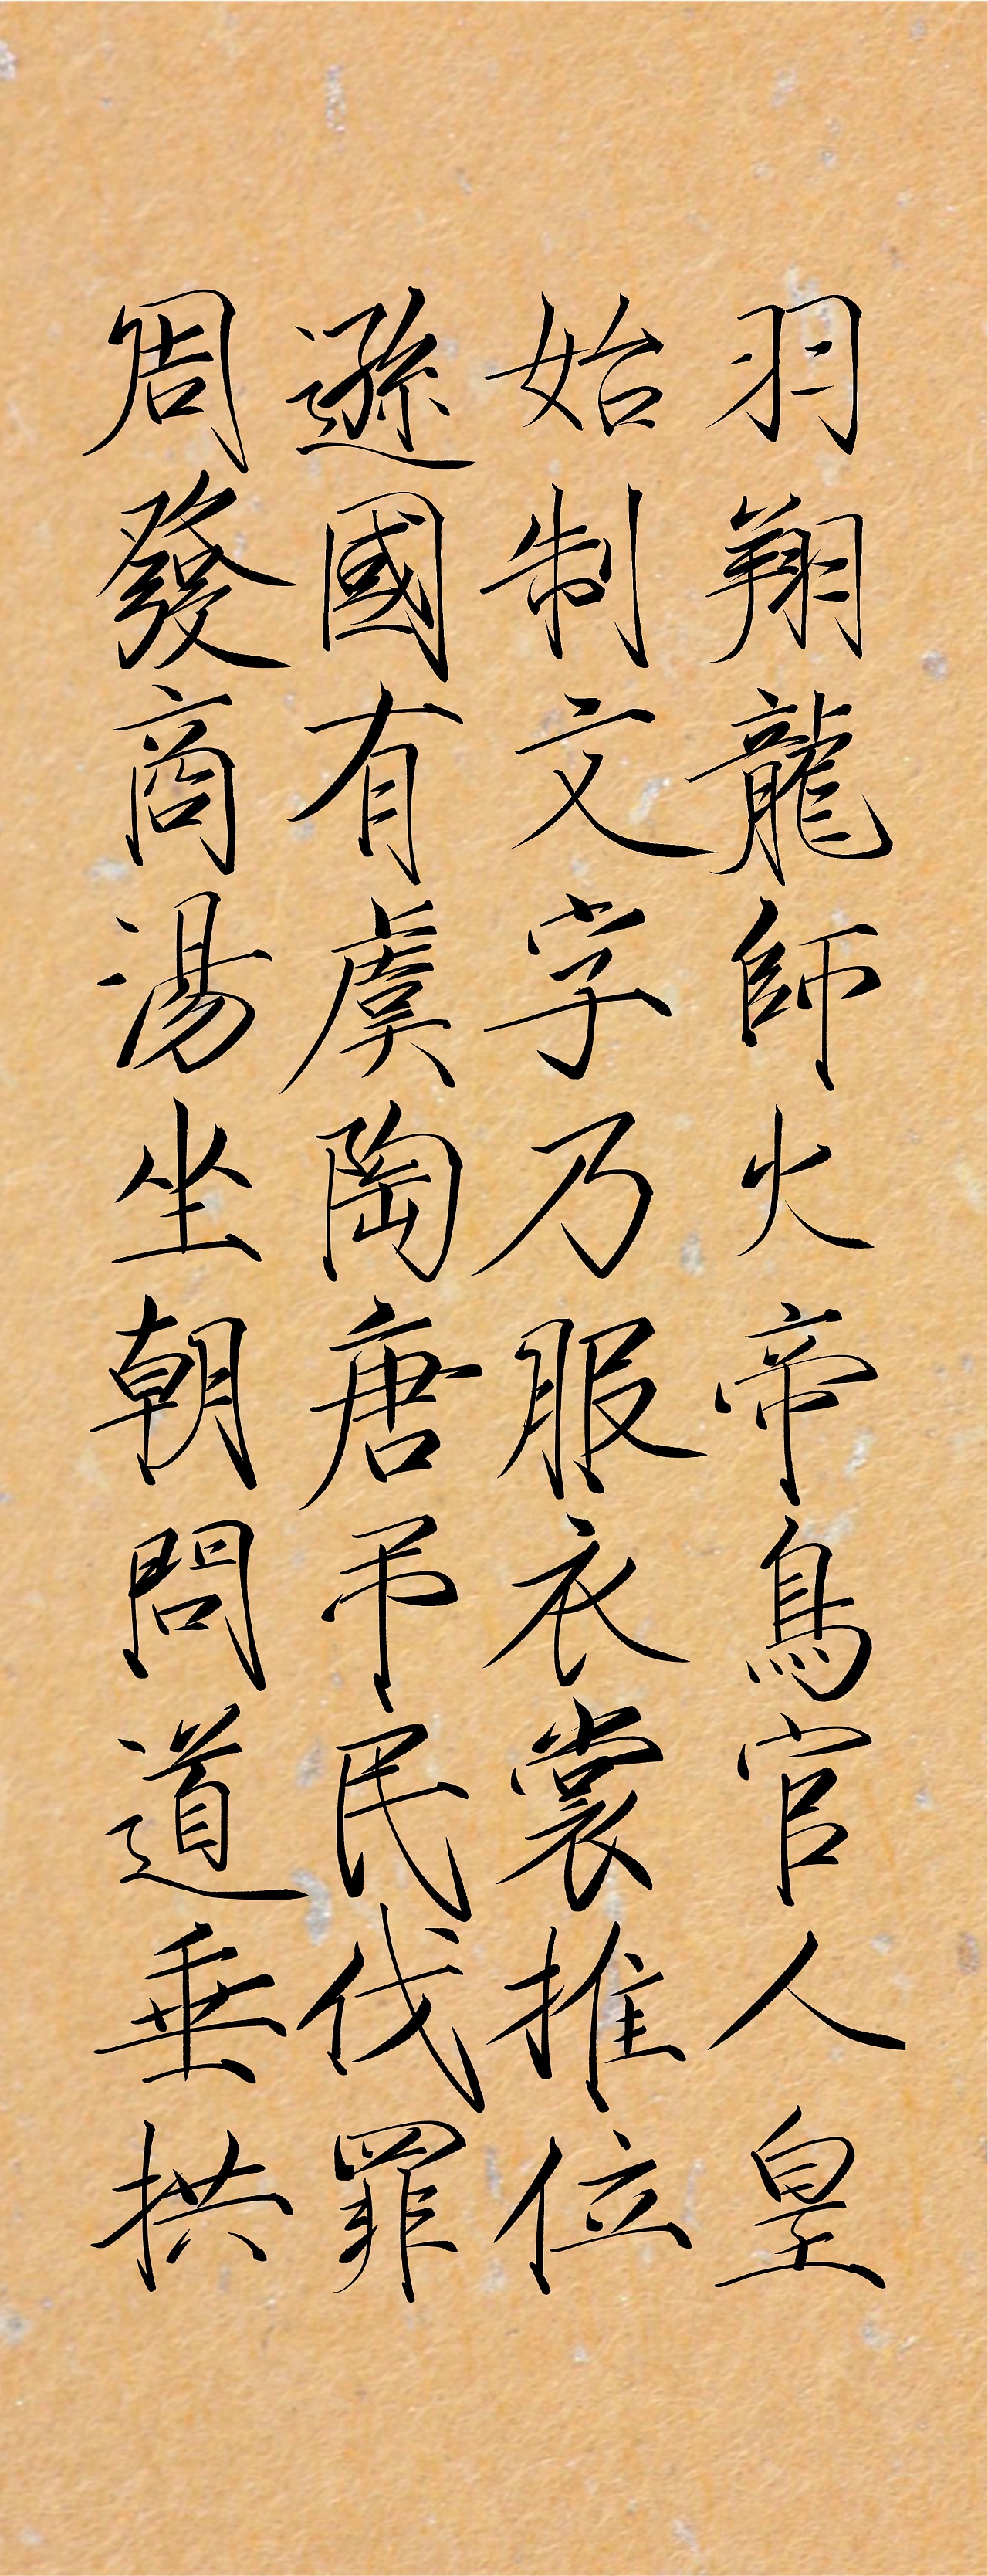 羽翔龍師火帝鳥官人皇
始制文字乃服衣裳推位
遜國有虞陶唐吊民伐罪
周發商湯坐朝問道垂拱